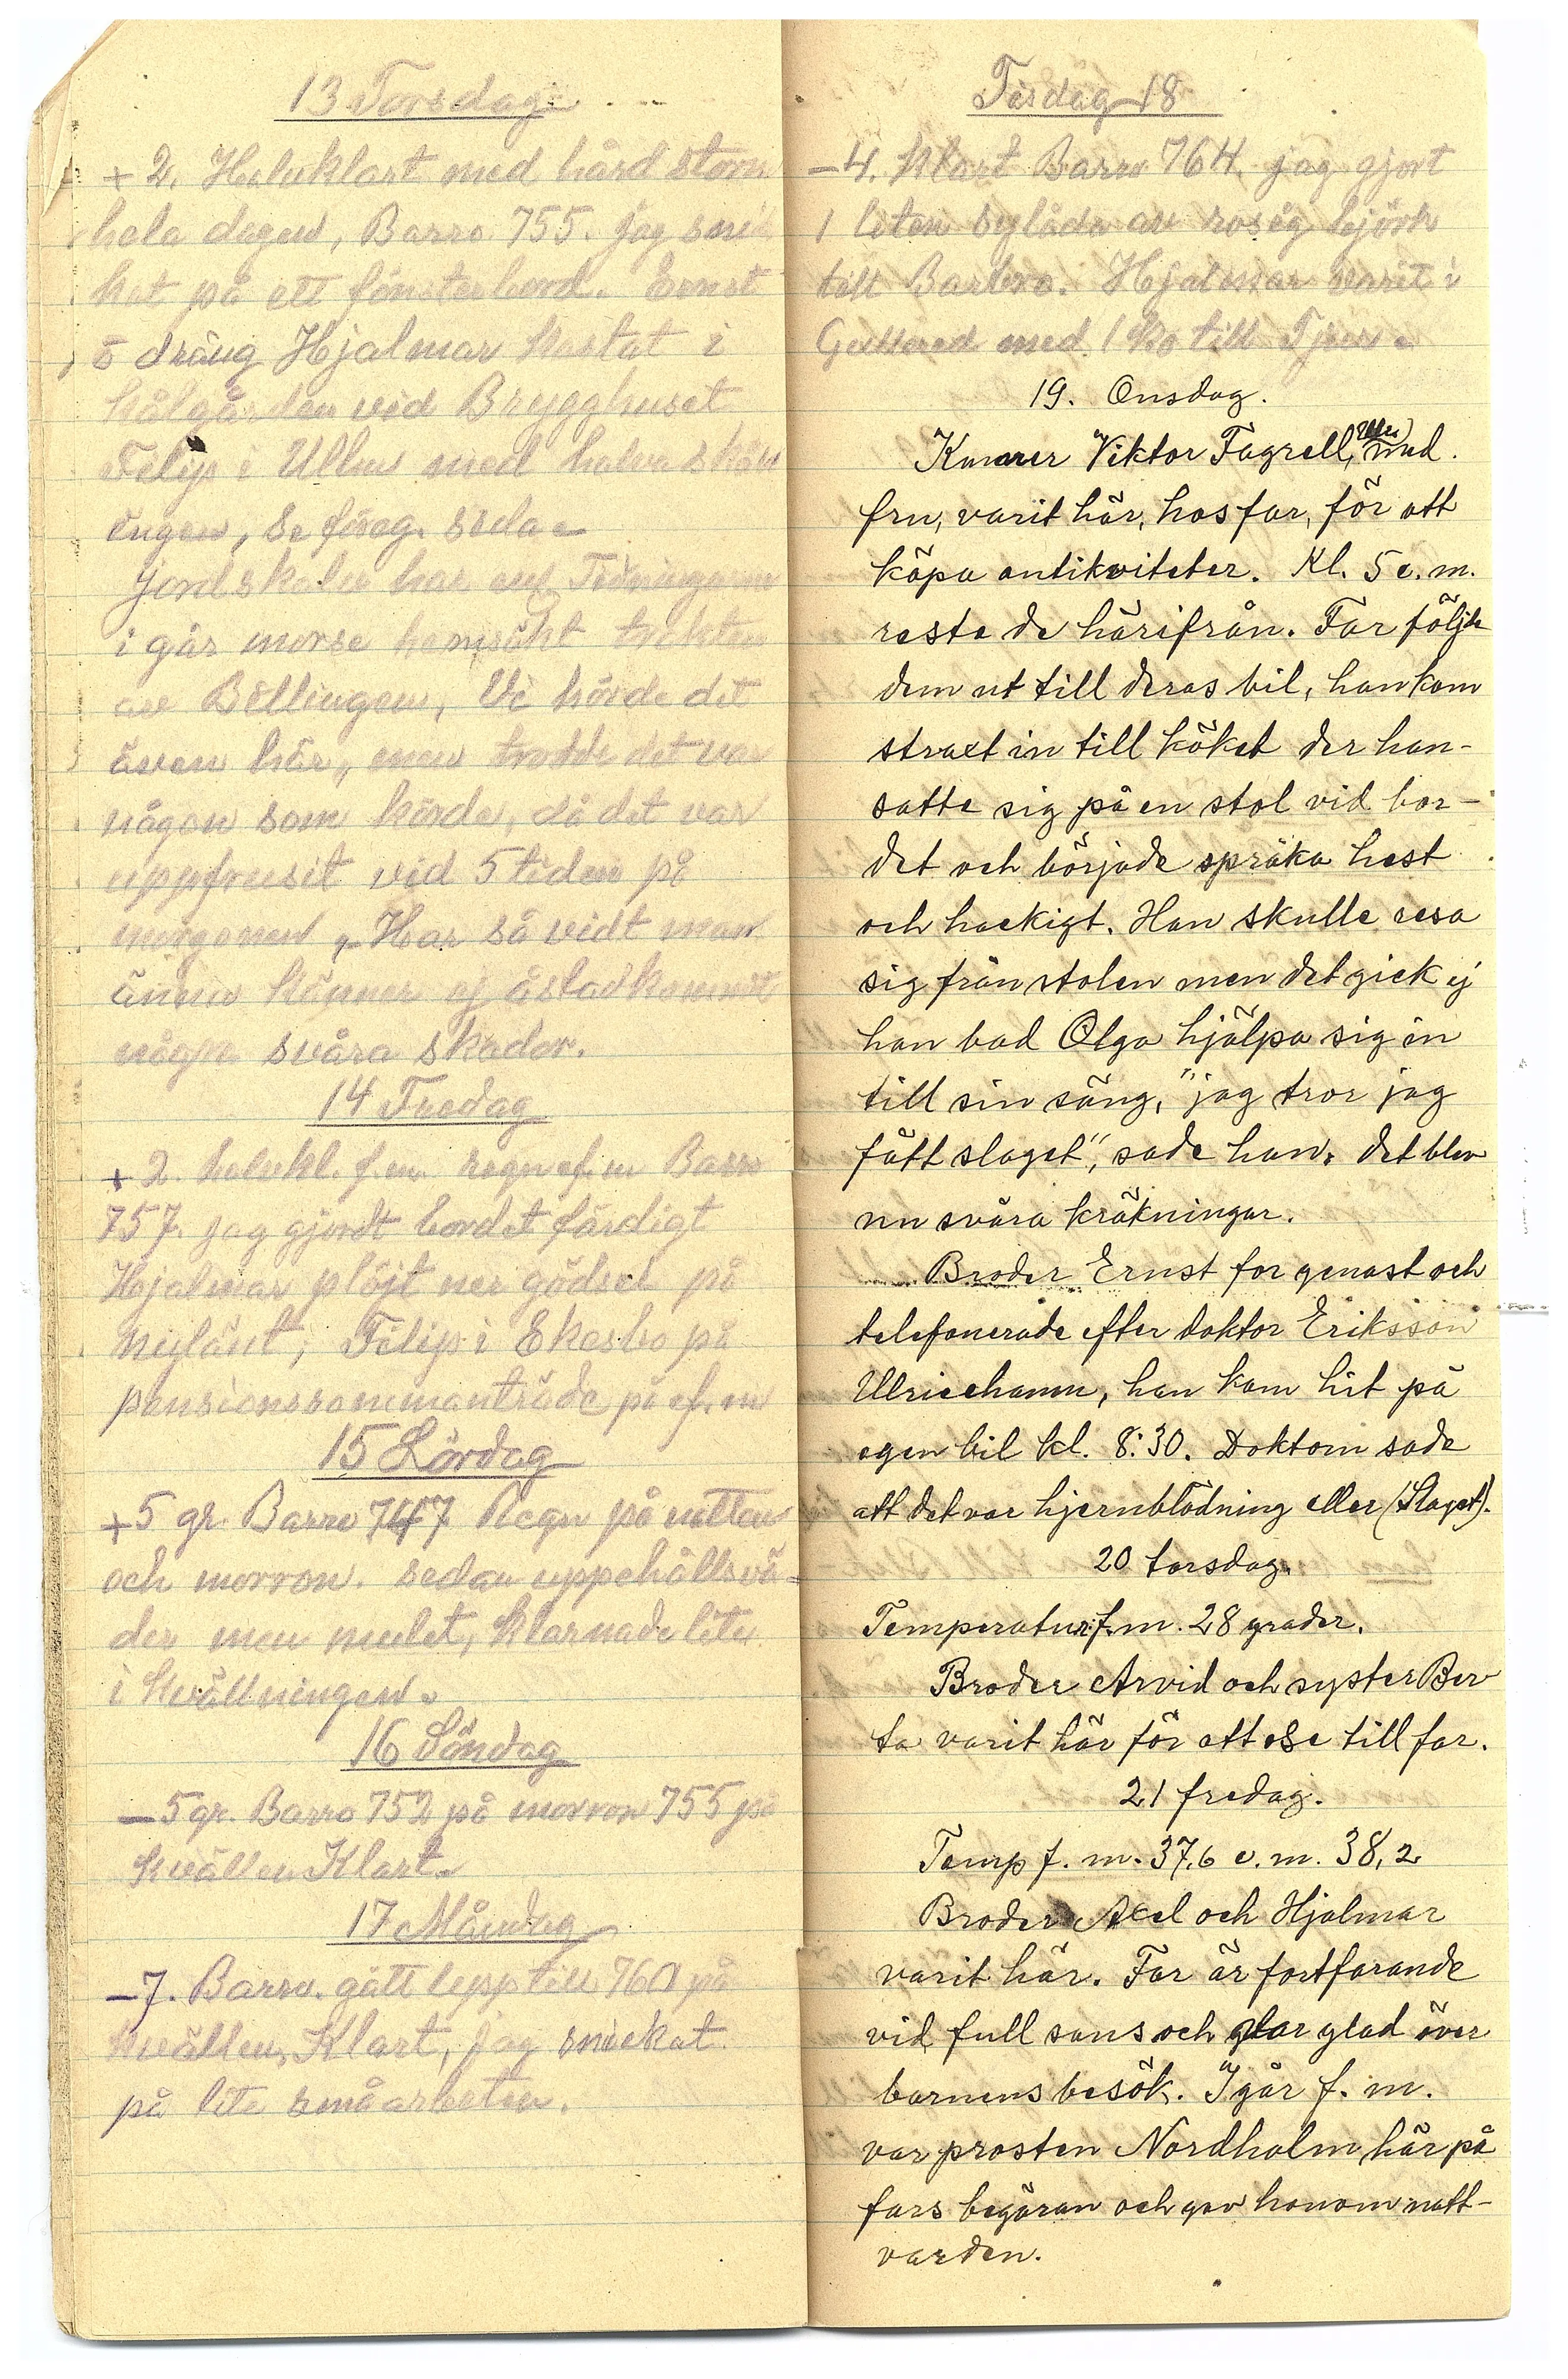 13 Torsdag
+ 2. Halvklart med hård storm
hela dagen, Barro 755. jag snic
kat på ett fönsterbord. Ernst
o dräng Hjalmar kastat i
kålgården vid Brygghuset
Felip i Ulku med halva skön
ingen, se föreg. sida
Jordskalv har enl Tidningarna
i går morse hemsökt trakten
av Billingen, Vi hörde det
även här, men trodde det var
någon som körde, då det var
uppfrusit vid 5 tiden på
morgonen, Har så vidt man
ännu känner ej åstadkommit
några svåra skador.
14 Fredag
+ 2. halvkl. f.m. regn ef.m Barro
757. jag gjordt bordet färdigt
Hjalmar plöjt ner gödsel på
Nylänt, Felip i Ekesbo på
pensionssommanträde på ef.m
15 Lördag
+5 gr. Barro 747 Regn på natten
och morron. sedan uppehållsvä-
der men mulet, klarnade lite
i kvällningen.
16 Söndag
– 5 gr. Barro 752 på morron 755 på
kvällen Klart.
17 Måndag
– 7. Barro. gått upp till 760 på
kvällen, Klart, jag snickat
på lite småarbeten.
Tisdag 18
– 4. Klart Barro 764. jag gjort
1 liten sylåda av rosig björk
till Barbro. Hjalmar varit i
Gullered med 1 ko till Tjur.
19. Onsdag.
Viktor Fagrell, med
fru, varit här, hos far, för att
köpa antikviteter. Kl. 5 e.m.
reste de härifrån. Far följde
dem ut till deras bil, han kom
straxt in till köket der han
satte sig på en stol vid bor-
det och började spräka hest
och hackigt. Han skulle resa
sig från stolen men det gick ej
han bad Olga hjälpa sig in
till sin säng, "jag tror jag
fått slaget", sade han. det blev
nu svåra kräkningar.
Broder Ernst for genast och
telefonerade efter doktor Eriksson
Ulricehamn, han kom hit på
egen bil kl. 8:30. Doktorn sade
att det var hjernblödning eller (Slaget).
20 torsdag.
Temperatur f.m. 28 grader.
Broder Arvid och syster Ber
ta varit här för att se till far.
21 fredag.
Temp f. m. 37,6 e. m. 38,2
Broder Axel och Hjalmar
varit här. Far är fortfarande
vid full sans och var glad över
barnens besök. Igår f. m.
var prosten Nordholm här på
fars begäran och gav honom natt-
varden.